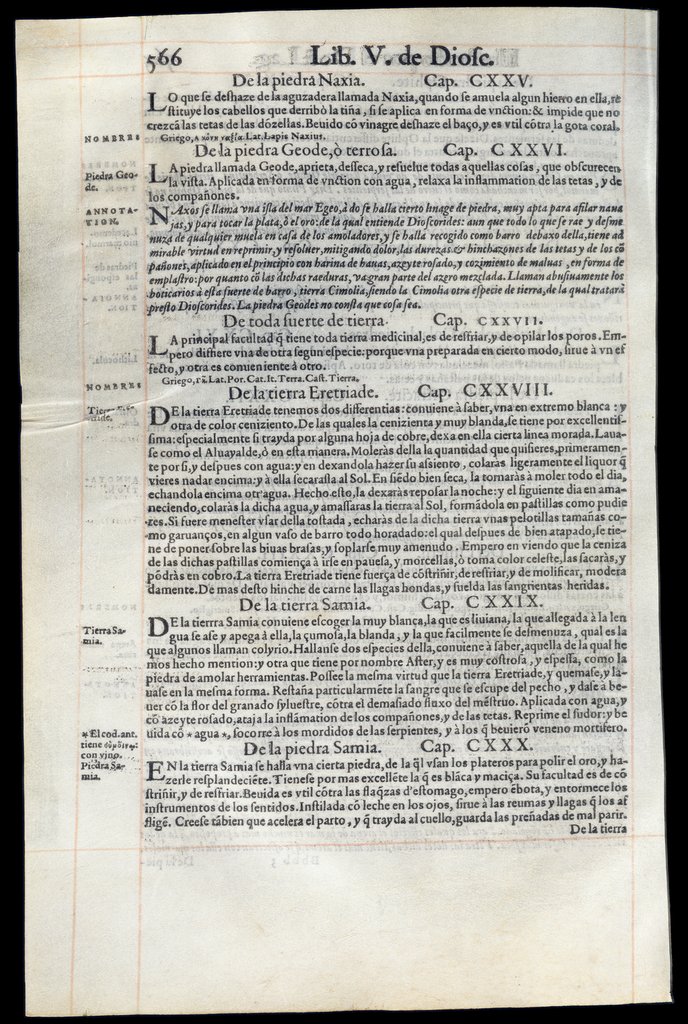 566
Lib. V. de Dioſc.
De la piedra Naxia. Cap. CXXV.
LO que ſe deshaze de la aguzadera llamada Naxia, quando ſe amuela algun hierro en ella, re
ſtituye los cabellos que derribò la tiña, ſi ſe aplica en forma de vnction: & impide que no
crezcã las tetas de las dõzellas. Beuido cõ vinagre deshaze el baço, y es vtil cõtra la gota coral.
NOMBRES
Griego, Lat. Lapis Naxius.
De la piedra Geode, ò terroſa. Cap. CXXVI.
Piedra Geo-
de.
LA piedra llamada Geode, aprieta, deſſeca, y reſuelue todas aquellas coſas, que obſcurecen
la viſta. Aplicada en forma de vnction con agua, relaxa la inflammation de las tetas, y de
los compañones.
ANNOTA-
TION.
NAxos ſe llama vna iſla del mar Egeo, à do ſe halla cierto linage de piedra, muy apta para afilar naua
jas, y para tocar la plata, ò el oro: de la qual entiende Dioſcorides: aun que todo lo que ſe rae y deſme
nuza de qualquier muela en caſa de los amoladores, y ſe halla recogido como barro debaxo della, tiene ad
mirable virtud en reprimir, y reſoluer, mitigando dolor, las durezas & hinchazones de las tetas y de los cõ
pañones, aplicado en el principio con harina de hauas, azeyte roſado, y cozimiento de maluas, en forma de
emplaſtro: por quanto cõ las dichas raeduras, va gran parte del azero mezclada. Llaman abuſiuamente los
boticarios à eſta ſuerte de barro, tierra Cimolia, ſiendo la Cimolia otra eſpecie de tierra, de la qual tratarà
preſto Dioſcorides. La piedra Geodes no conſta que coſa ſea.
De toda ſuerte de tierra. Cap. CXXVII.
LA principal facultad q̃ tiene toda tierra medicinal, es de resfriar, y de opilar los poros. Em-
pero differe vna de otra ſegun eſpecie: porque vna preparada en cierto modo, ſirue à vn ef
fecto, y otra es conueniente à otro.
NOMBRES
Griego, Lat. Por. Cat. It. Terra. Caſt. Tierra.
De la tierra Eretriade. Cap. CXXVIII.
DE la tierra Eretriade tenemos dos differentias: conuiene à ſaber, vna en extremo blanca: y
otra de color ceniziento. De las quales la cenizienta y muy blanda, ſe tiene por excellentiſ-
ſima: eſpecialmente ſi trayda por alguna hoja de cobre, dexa en ella cierta linea morada. Laua-
ſe como el Aluayalde, ò en eſta manera. Moleràs della la quantidad que quiſieres, primeramen-
te por ſi, y deſpues con agua: y en dexandola hazer ſu aſsiento, colaràs ligeramente el liquor q̃
vieres nadar encima: y à ella ſecaraſla al Sol. En ſiẽdo bien ſeca, la tornaràs à moler todo el dia,
echandola encima otr'agua. Hecho eſto, la dexaràs repoſar la noche: y el ſiguiente dia en ama-
neciendo, colaràs la dicha agua, y amaſſaras la tierra al Sol, formãdola en paſtillas como pudie
res. Si fuere meneſter vſar della toſtada, echaràs de la dicha tierra vnas pelotillas tamañas co-
mo garuanços, en algun vaſo de barro todo horadado: el qual deſpues de bien atapado, ſe tie-
ne de poner ſobre las biuas braſas, y ſoplarſe muy amenudo. Empero en viendo que la ceniza
de las dichas paſtillas comiença à irſe en pauefa, y morcellas, ò toma color celeſte, las ſacaràs, y
põdràs en cobro. La tierra Eretriade tiene fuerça de cõſtriñir, de resfriar, y de molificar, modera
damente. De mas deſto hinche de carne las llagas hondas, y ſuelda las ſangrientas heridas.
De la tierra Samia. Cap. CXXIX.
Tierra Sa-
mia.
DE la tierrra Samia conuiene eſcoger la muy blanca, la que es liuiana, la que allegada à la len
gua ſe aſe y apega à ella, la çumoſa, la blanda, y la que facilmente ſe deſmenuza, qual es la
que algunos llaman colyrio. Hallanſe dos eſpecies della, conuiene à ſaber, aquella de la qual he
mos hecho mention: y otra que tiene por nombre Aſter, y es muy coſtroſa, y eſpeſſa, como la
piedra de amolar herramientas. Poſſee la meſma virtud que la tierra Eretriade, y quemaſe, y la-
uaſe en la meſma forma. Reſtaña particularmẽte la ſangre que ſe eſcupe del pecho, y daſe à be-
uer cõ la flor del granado ſylueſtre, cõtra el demaſiado fluxo del mẽſtruo. Aplicada con agua, y
cõ azeyte roſado, ataja la inflãmation de los compañones, y de las tetas. Reprime el ſudor: y be
uida cõ * agua, ſocorre à los mordidos de las ſerpientes, y à los q̃ beuierõ veneno mortifero.
* El cod. ant.
tiene
con vino.
De la piedra Samia. Cap. CXXX.
Piedra Sa-
mia.
EN la tierra Samia ſe halla vna cierta piedra, de la q̃l vſan los plateros para polir el oro, y ha-
zerle reſplandeciẽte. Tieneſe por mas excellẽte la q̃ es blãca y maciça. Su facultad es de cõ
ſtriñir, y de resfriar. Beuida es vtil cõtra las flaq̃zas d'eſtomago, empero ẽbota, y entormece los
inſtrumentos de los ſentidos. Inſtilada cõ leche en los ojos, ſirue à las reumas y llagas q̃ los af
fligẽ. Creeſe tãbien que acelera el parto, y q̃ trayda al cuello, guarda las preñadas de mal parir.
De la tierra